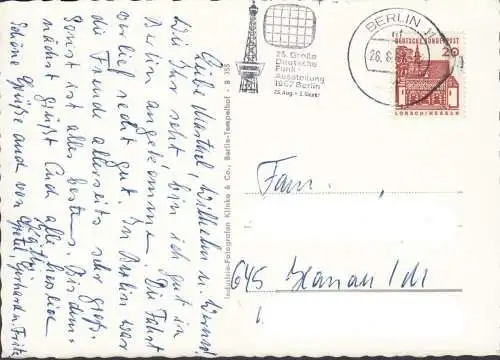 Liebe Marthel, Wilhelm u. Werner!
Wie Ihr seht, bin ich gut in
Berlin angekommen. Die Fahrt
verlief recht gut. In Berlin war
die Freude allerseits sehr groß.
Sonst ist alles bestens. Bis dem-
nächst grüßt Euch alle herzlich
Käthe.
Schöne Grüße auch von Gretel, Gerhard u. Fritz
Industrie-Fotografen Klinke & Co., Berlin-Tempelhof - B 355
25. Große
Deutsche
Funk-
Ausstellung
1967 Berlin
25. Aug. - 3. Sept.
BERLIN 11
26. 8.
DEUTSCHE BUNDESPOST
LORSCH/HESSEN
Fam.
645 Hanau/